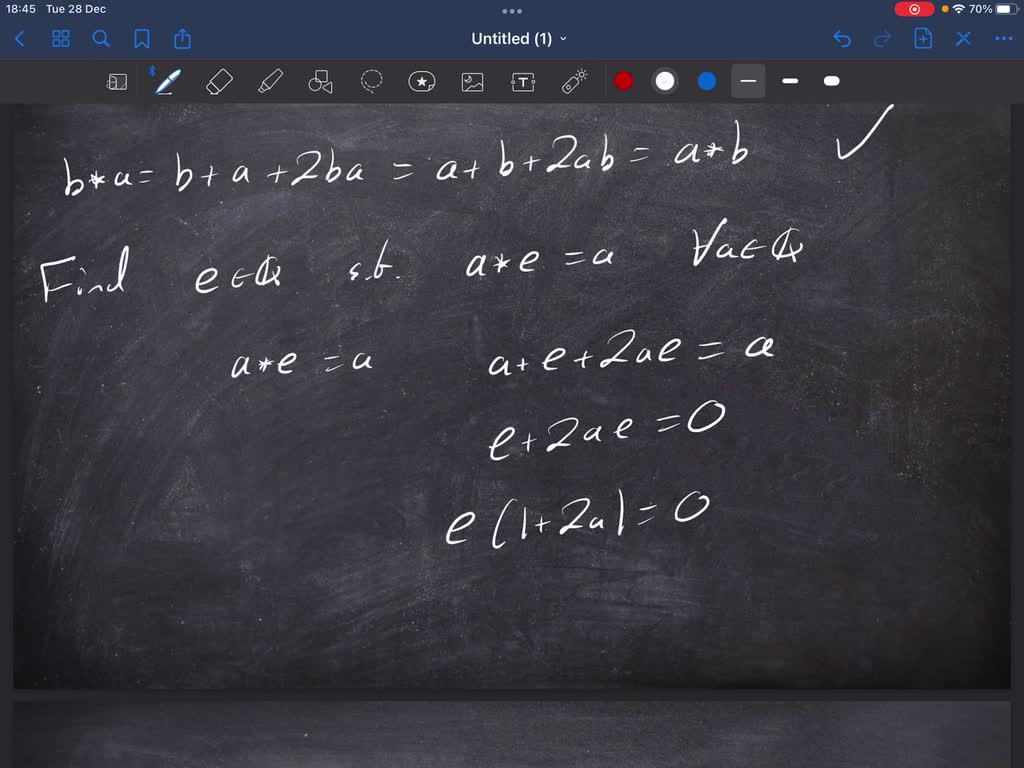 18:45 Tue 28 Dec 70%
Untitled (1)
b*a= b+a+2ba = a+b+2ab = a*b ✓
Find e∈ℚ s.t. a*e=a ∀a∈ℚ
a*e=a a+e+2ae=a
e+2ae=0
e(1+2a)=0